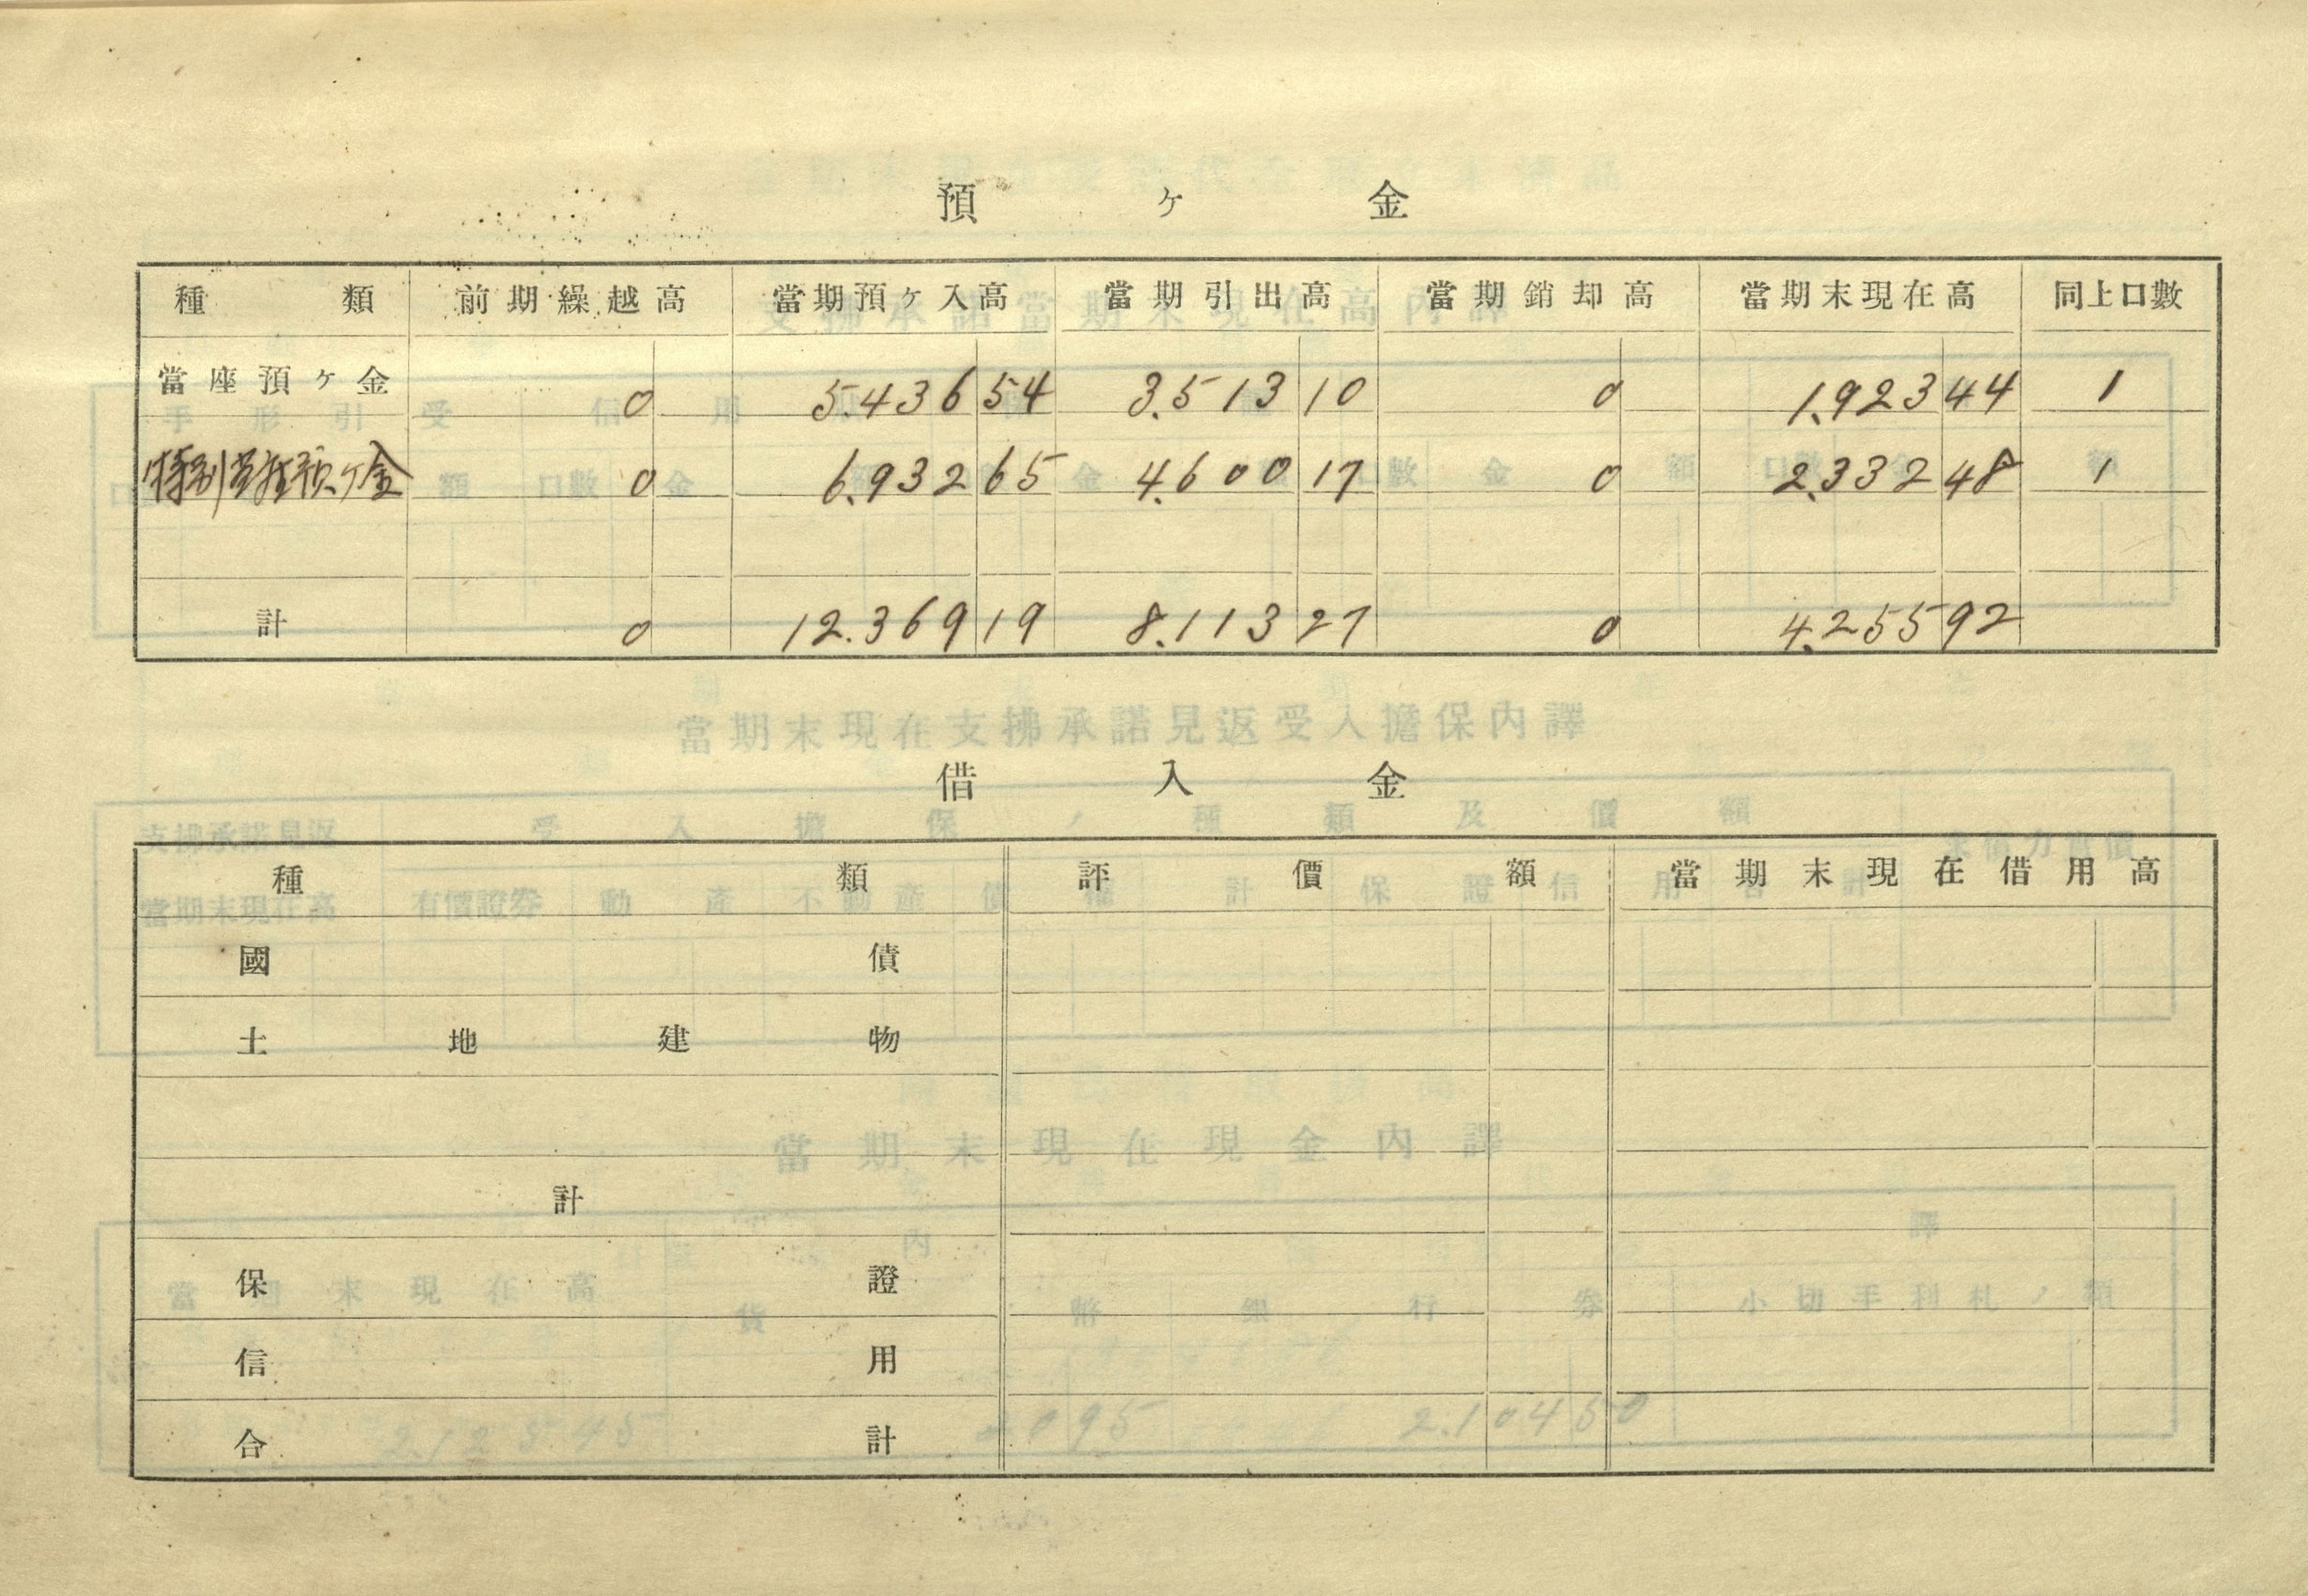 預ヶ金
種類 前期繰越高 當期預ヶ入高 當期引出高 當期銷却高 當期末現在高 同上口數
當座預ヶ金 0 5.436 54 3.513 10 0 1.923 44 1
特別當座預ヶ金 0 6.932 65 4.600 17 0 2.332 48 1
計 0 12.369 19 8.113 27 0 4.255 92
借入金
種類 評價額 當期末現在借用高
國債
土地建物
計
保證
信用
合計